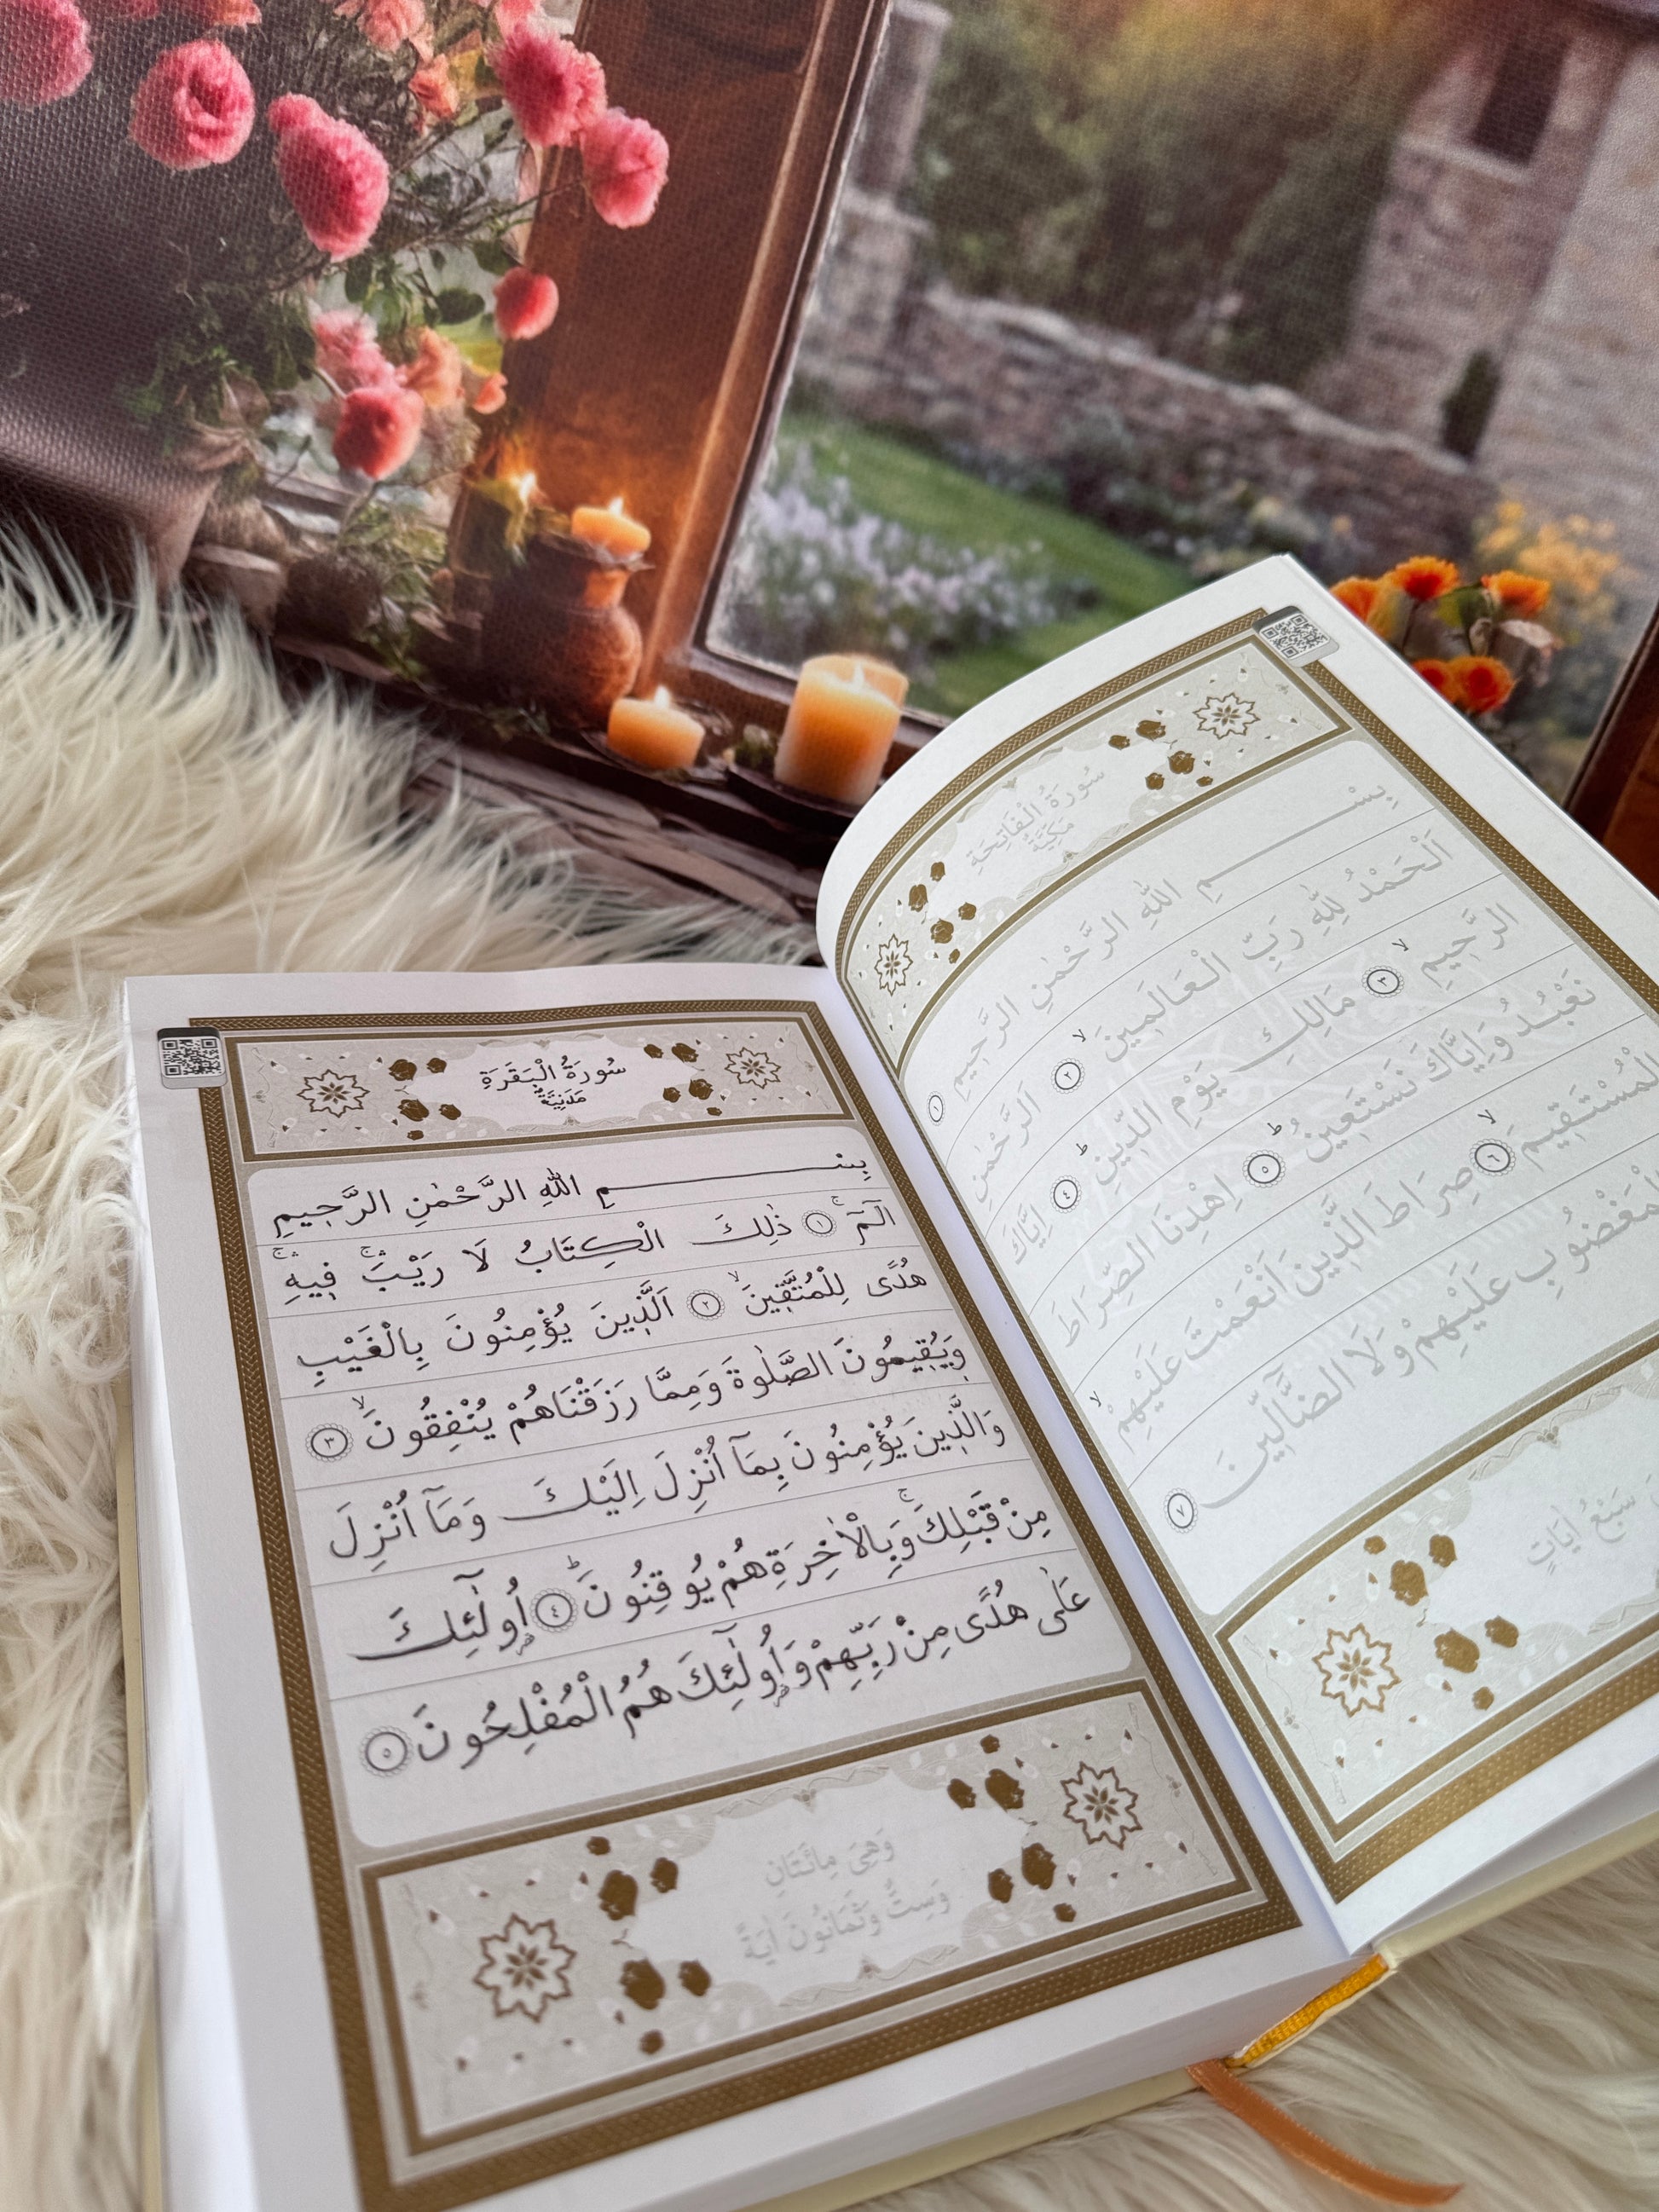 سُورَةُ الْفَاتِحَةِ
مَكِّيَّةٌ
بِسْمِ اللّٰهِ الرَّحْمٰنِ الرَّحِيمِ ﴿١﴾
اَلْحَمْدُ لِلّٰهِ رَبِّ الْعَالَمِينَۙ ﴿٢﴾ اَلرَّحْمٰنِ
الرَّحِيمِۙ ﴿٣﴾ مَالِكِ يَوْمِ الدِّينِۜ ﴿٤﴾ اِيَّاكَ
نَعْبُدُ وَاِيَّاكَ نَسْتَعِينُۜ ﴿٥﴾ اِهْدِنَا الصِّرَاطَ
الْمُسْتَقِيمَۙ ﴿٦﴾ صِرَاطَ الَّذِينَ اَنْعَمْتَ عَلَيْهِمْۙ
الْمَغْضُوبِ عَلَيْهِمْ وَلَا الضَّٓالِّينَ ﴿٧﴾
سَبْعُ اٰيَاتٍ
سُورَةُ الْبَقَرَةِ
مَدَنِيَّةٌ
بِسْمِ اللّٰهِ الرَّحْمٰنِ الرَّحِيمِ
الٓمٓۚ ﴿١﴾ ذٰلِكَ الْكِتَابُ لَا رَيْبَۚۛ فِيهِۚۛ
هُدًى لِلْمُتَّقِينَۙ ﴿٢﴾ اَلَّذِينَ يُؤْمِنُونَ بِالْغَيْبِ
وَيُقِيمُونَ الصَّلٰوةَ وَمِمَّا رَزَقْنَاهُمْ يُنْفِقُونَۙ ﴿٣﴾
وَالَّذِينَ يُؤْمِنُونَ بِمَٓا اُنْزِلَ اِلَيْكَ وَمَٓا اُنْزِلَ
مِنْ قَبْلِكَۚ وَبِالْاٰخِرَةِ هُمْ يُوقِنُونَۜ ﴿٤﴾ اُو۬لٰٓئِكَ
عَلٰى هُدًى مِنْ رَبِّهِمْ وَاُو۬لٰٓئِكَ هُمُ الْمُفْلِحُونَ ﴿٥﴾
وَهِيَ مِائَتَانِ
وَسِتٌّ وَثَمَانُونَ اٰيَةً